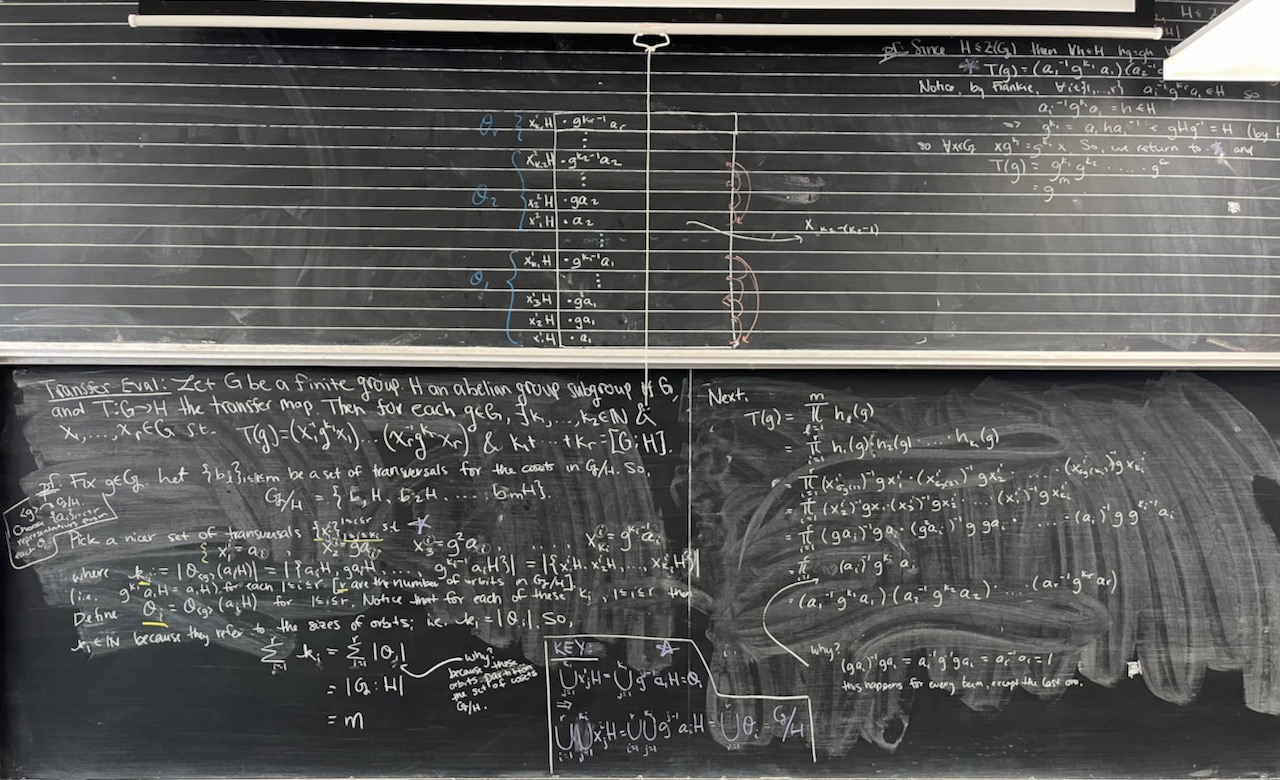 H ≤ Z(G)
pf: Since H ≤ Z(G) then ∀h∈H hg=gh ∀
* T(g) = (a₁⁻¹ g^{k₁} a₁)(a₂⁻¹ g
Notice, by Frankie, ∀i∈{1,...,r} aᵢ⁻¹g^{kᵢ}aᵢ ∈ H so
aᵢ⁻¹g^{kᵢ}aᵢ = h ∈ H
=> g^{kᵢ} = aᵢ h aᵢ⁻¹ gHg⁻¹ = H (by H
so ∀x∈G, xg^{kᵢ} = g^{kᵢ}x. So, we return to * and
T(g) = g^{k₁} g^{k₂} · ... · g^{kᵣ}
= g^m
θᵣ { x^r_{kᵣ}H · g^{kᵣ-1}aᵣ
⋮
x²_{k₂}H · g^{k₂-1}a₂
⋮
θ₂ { x²₂H · ga₂
x²₁H · a₂
⋮
x_{k₂-(k₂-1)}
x¹_{k₁}H · g^{k₁-1}a₁
⋮
θ₁ { x¹₃H · g²a₁
x¹₂H · ga₁
x¹₁H · a₁
Transfer Eval: Let G be a finite group. H an abelian group subgroup of G,
and T:G→H the transfer map. Then for each g∈G, ∃k₁,...,k₂∈ℕ &
x₁,...,xᵣ∈G s.t. T(g)=(x₁⁻¹g^{k₁}x₁)...(xᵣ⁻¹g^{kᵣ}xᵣ) & k₁+...+kᵣ=[G:H].
pf: Fix g∈G. Let {bᵢ}_{1≤i≤m} be a set of transversals for the cosets in G/H. So,
G/H = {b₁H, b₂H, ..., bₘH}.
<g> ↷ G/H.
Choose {aᵢ}_{1≤i≤r}
representatives from
each θᵢ
Pick a nicer set of transversals {xⁱⱼ}^{1≤i≤r}_{1≤j≤kᵢ} s.t. *
{ xⁱ₁ = aᵢ, xⁱ₂ = gaᵢ, xⁱ₃ = g²aᵢ, ..., xⁱ_{kᵢ} = g^{kᵢ-1}aᵢ
where kᵢ := |θ_{<g>}(aᵢH)| = |{aᵢH, gaᵢH, ..., g^{kᵢ-1}aᵢH}| = |{xⁱ₁H, xⁱ₂H, ..., xⁱ_{kᵢ}H}|
(i.e. g^{kᵢ}aᵢH = aᵢH) for each 1≤i≤r [r are the number of orbits in G/H].
Define θᵢ = θ_{<g>}(aᵢH) for 1≤i≤r. Notice that for each of these kᵢ, 1≤i≤r then
kᵢ∈ℕ because they refer to the sizes of orbits; i.e. kᵢ = |θᵢ|. So,
∑_{i=1}^{r} kᵢ = ∑_{i=1}^{r} |θᵢ|
= |G:H|
= m
why?
because these
orbits partition
the set of cosets
G/H.
KEY: *
⋃_{j=1}^{kᵢ} xⁱⱼH = ⋃_{j=1}^{kᵢ} g^{j-1}aᵢH = θᵢ
=>
⋃_{i=1}^{r}⋃_{j=1}^{kᵢ} xⁱⱼH = ⋃_{i=1}^{r}⋃_{j=1}^{kᵢ} g^{j-1}aᵢH = ⋃_{i=1}^{r} θᵢ = G/H
Next,
T(g) = ∏_{l=1}^{m} h_l(g)
= ∏_{i=1}^{r} h₁(g)·h₂(g)· ... ·h_{kᵢ}(g)
= ∏_{i=1}^{r} (xⁱ_{σg(1)})⁻¹gxⁱ₁ · (xⁱ_{σg(2)})⁻¹gxⁱ₂ · ... · (xⁱ_{σg(kᵢ)})⁻¹gxⁱ_{kᵢ}
= ∏_{i=1}^{r} (xⁱ₂)⁻¹gxⁱ₁ · (xⁱ₃)⁻¹gxⁱ₂ ... (xⁱ₁)⁻¹gxⁱ_{kᵢ}
= ∏_{i=1}^{r} (gaᵢ)⁻¹gaᵢ · (g²aᵢ)⁻¹g gaᵢ · ... · (aᵢ)⁻¹g g^{kᵢ-1}aᵢ
= ∏_{i=1}^{r} (aᵢ)⁻¹ g^{kᵢ} aᵢ
= (a₁⁻¹g^{k₁}a₁)(a₂⁻¹g^{k₂}a₂) · ... (aᵣ⁻¹g^{kᵣ}aᵣ)
why?
(gaᵢ)⁻¹gaᵢ = aᵢ⁻¹g⁻¹gaᵢ = aᵢ⁻¹aᵢ = 1
this happens for every term, except the last one.